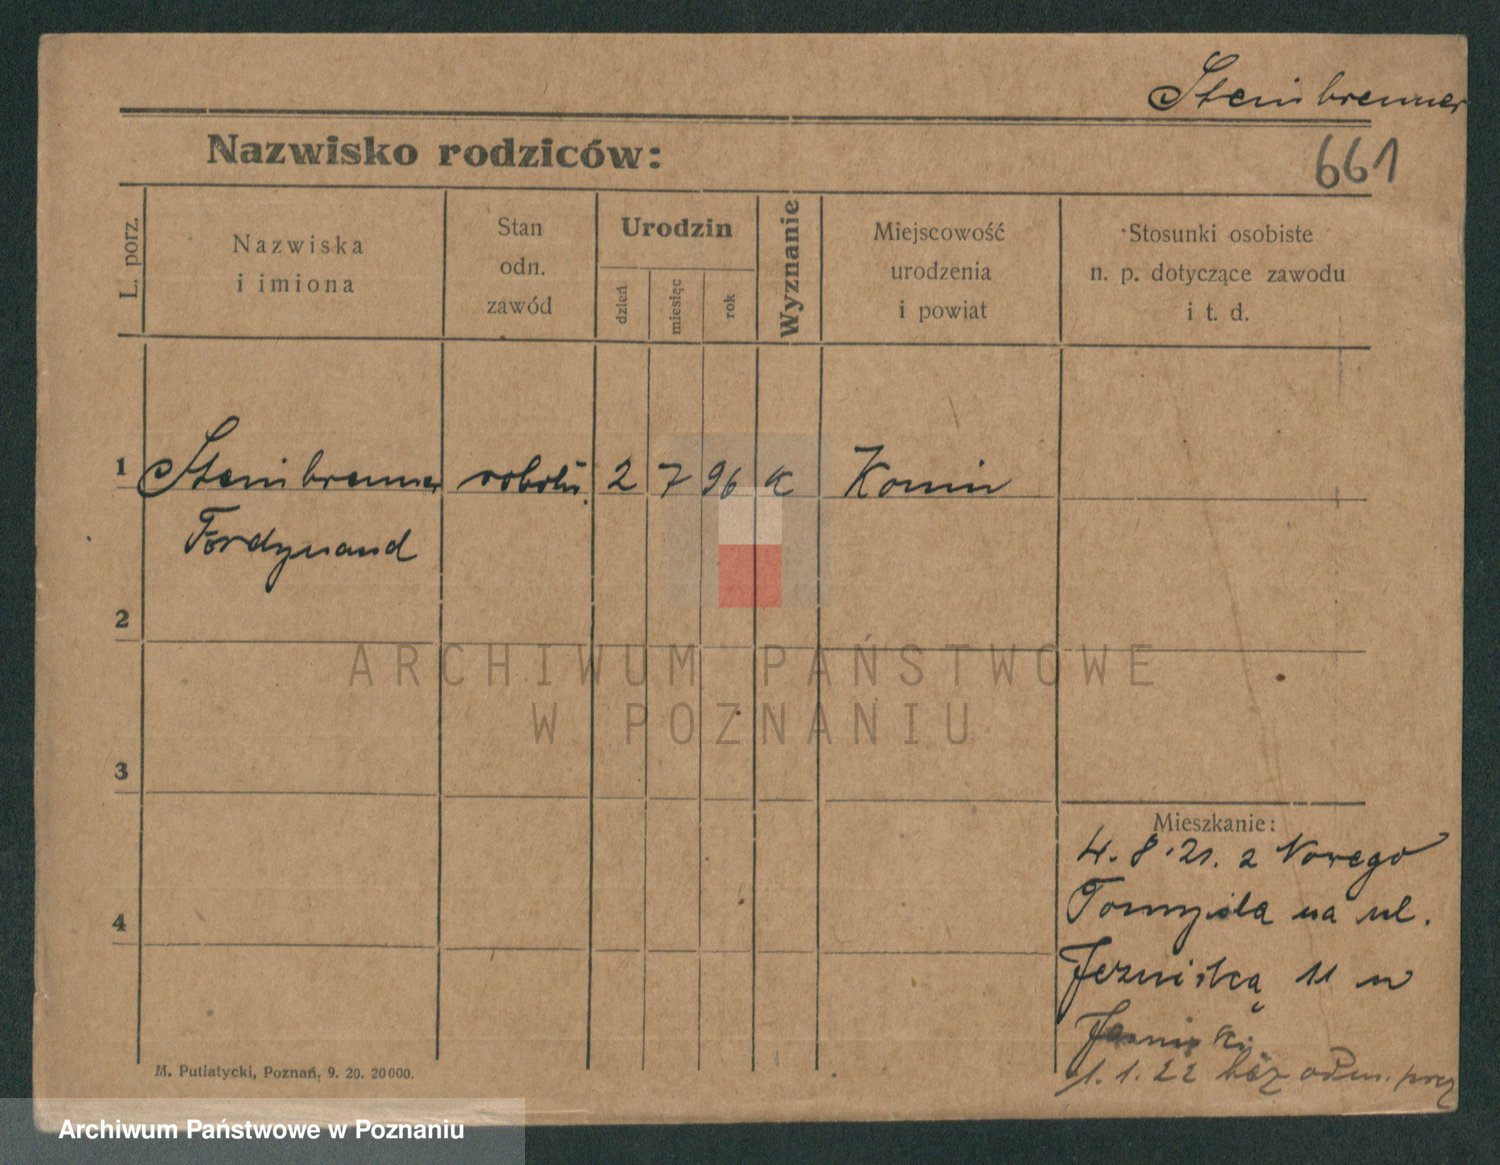 Steinbrenner
Nazwisko rodziców:
661
L. porz.
Nazwiska
i imiona
Stan
odn.
zawód
Urodzin
dzień
miesięc
rok
Wyznanie
Miejscowość
urodzenia
i powiat
Stosunki osobiste
n. p. dotyczące zawodu
i t. d.
1 Steinbrenner robotn. 2 7 96 k Konin
Ferdynand
2
ARCHIWUM PAŃSTWOWE
W POZNANIU
3
Mieszkanie:
4. 8. 21. z Nowego
Tomyśla na ul.
4
11 w
1. 1. 22 bez odm.
M. Putiatycki, Poznań, 9. 20. 20000.
Archiwum Państwowe w Poznaniu